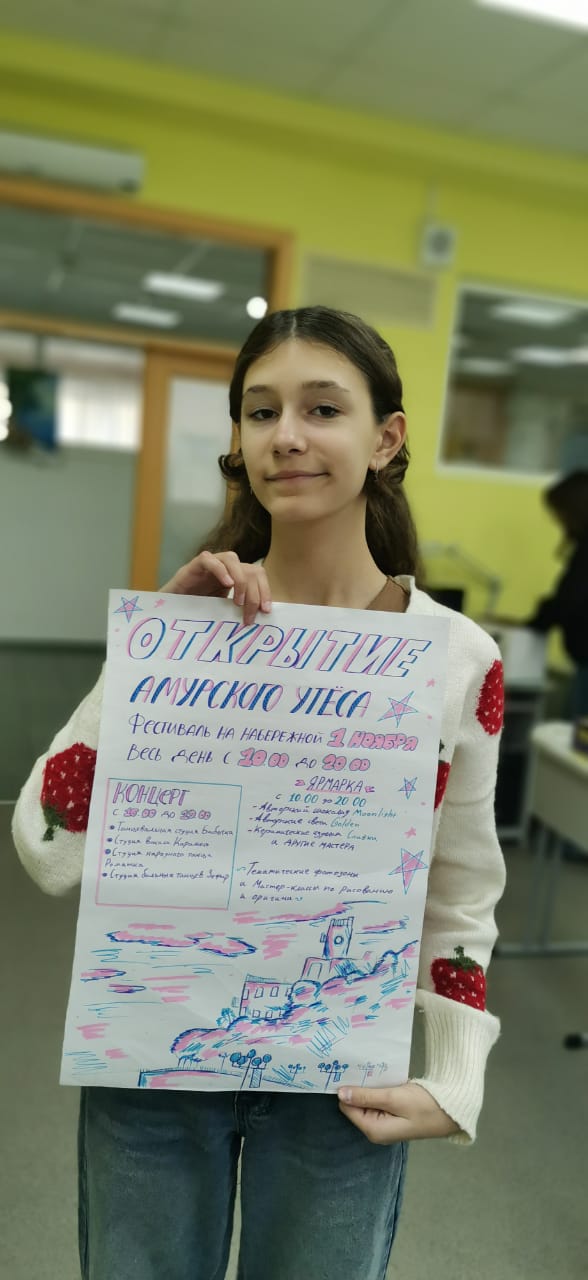 ОТКРЫТИЕ
АМУРСКОГО УТЁСА
ФЕСТИВАЛЬ НА НАБЕРЕЖНОЙ 1 НОЯБРЯ
ВЕСЬ ДЕНЬ С 10 00 ДО 20 00
КОНЦЕРТ
С ДО
Танцевальная студия
Студия
Студия народного танца
Романтика
Студия бальных танцев Зефир
ЯРМАРКА
С 10.00 до 20 00
- Авторский шоколад Moonlight
- Авторские свечи Golden
- Керамические изделия
И ДРУГИЕ МАСТЕРА
Тематические фотозоны
и Мастер-классы по рисованию
и оригами